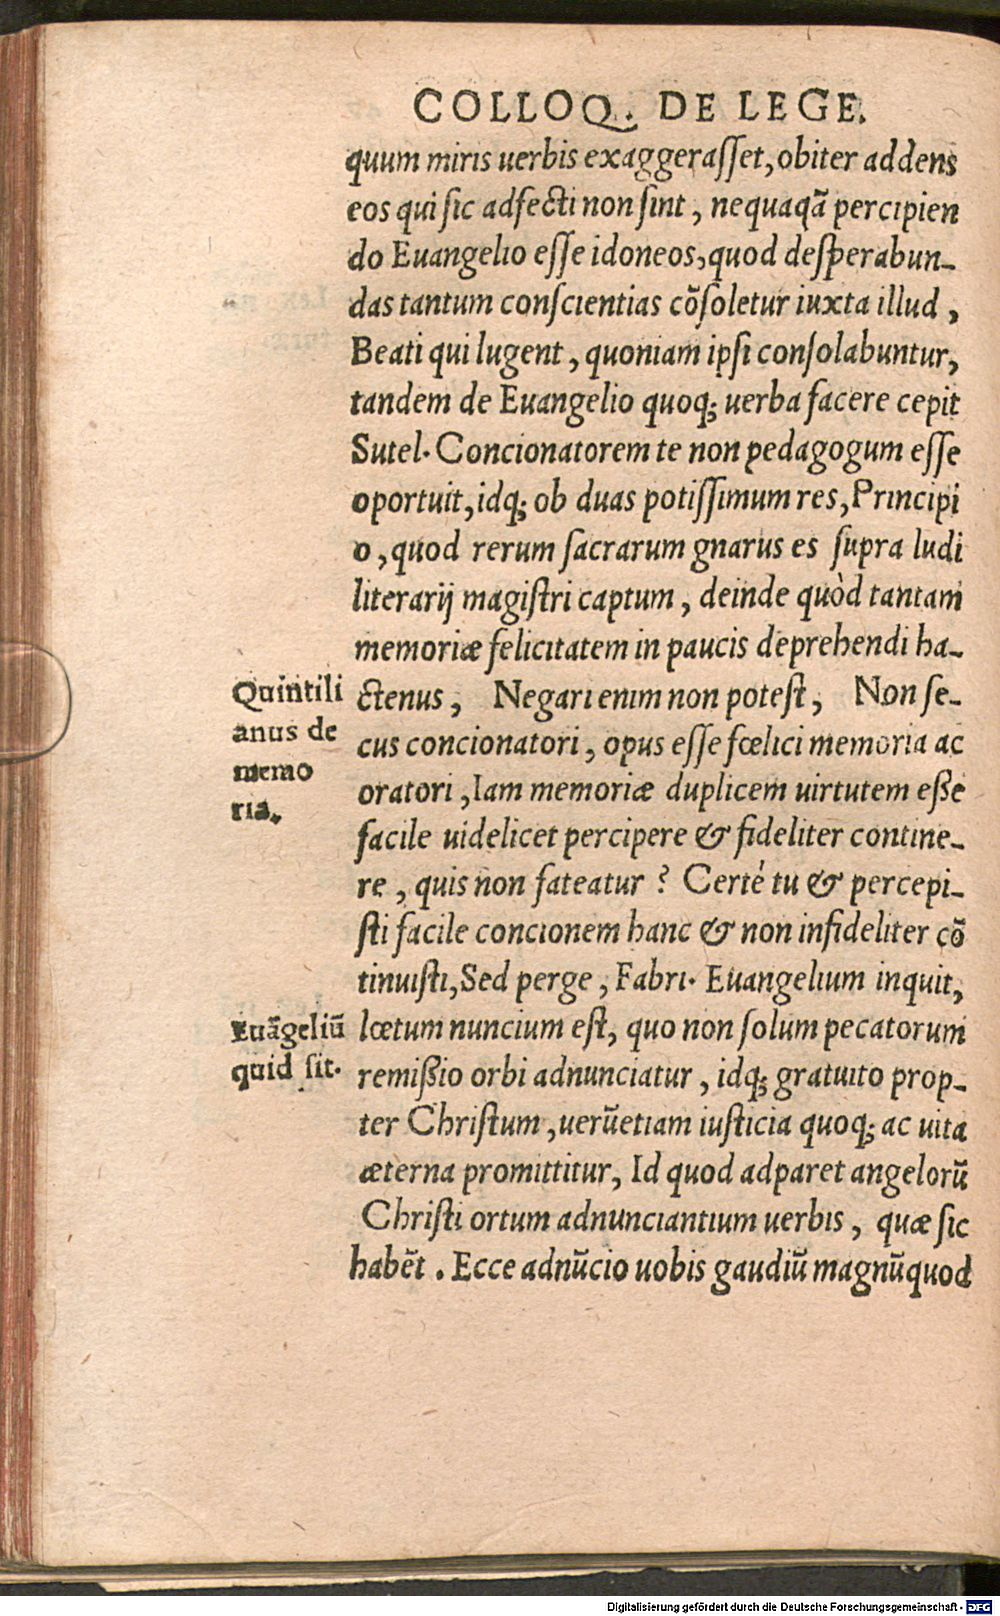 COLLOQ. DE LEGE.
quum miris uerbis exaggeraſſet, obiter addens
eos qui ſic adfecti non ſint, nequaqã percipien
do Euangelio eſſe idoneos, quod deſperabun-
das tantum conſcientias cõſoletur iuxta illud,
Beati qui lugent, quoniam ipſi conſolabuntur,
tandem de Euangelio quoq; uerba facere cepit
Sutel. Concionatorem te non pedagogum eſſe
oportuit, idq; ob duas potiſſimum res, Principi
o, quod rerum ſacrarum gnarus es ſupra ludi
literarij magiſtri captum, deinde quòd tantam
memoriæ felicitatem in paucis deprehendi ha-
Quintili
anus de
memo
ria.
ctenus, Negari enim non poteſt, Non ſe-
cus concionatori, opus eſſe fœlici memoria ac
oratori, Iam memoriæ duplicem uirtutem eße
facile uidelicet percipere & fideliter contine-
re, quis non fateatur? Certé tu & percepi-
ſti facile concionem hanc & non infideliter cõ
tinuiſti, Sed perge, Fabri. Euangelium inquit,
Euãgeliũ
quid ſit.
lœtum nuncium eſt, quo non ſolum pecatorum
remißio orbi adnunciatur, idq; gratuito prop-
ter Chriſtum, uerũetiam iuſticia quoq; ac uita
æterna promittitur, Id quod adparet angelorũ
Chriſti ortum adnunciantium uerbis, quæ ſic
habẽt. Ecce adnũcio uobis gaudiũ magnũquod
Digitalisierung gefördert durch die Deutsche Forschungsgemeinschaft - DFG